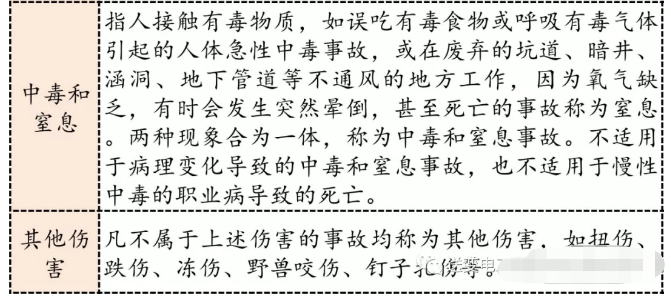 指人接触有毒物质，如误吃有毒食物或呼吸有毒气体
引起的人体急性中毒事故，或在废弃的坑道、暗井、
涵洞、地下管道等不通风的地方工作，因为氧气缺
中毒和
窒息
乏，有时会发生突然晕倒，甚至死亡的事故称为窒息
。两种现象合为一体，称为中毒和窒息事故。不适用
于病理变化导致的中毒和窒息事故，也不适用于慢性
中毒的职业病导致的死亡。
其他伤
害
凡不属于上述伤害的事故均称为其他伤害，如扭伤、
跌伤、冻伤、野兽咬伤、钉子扎伤等。